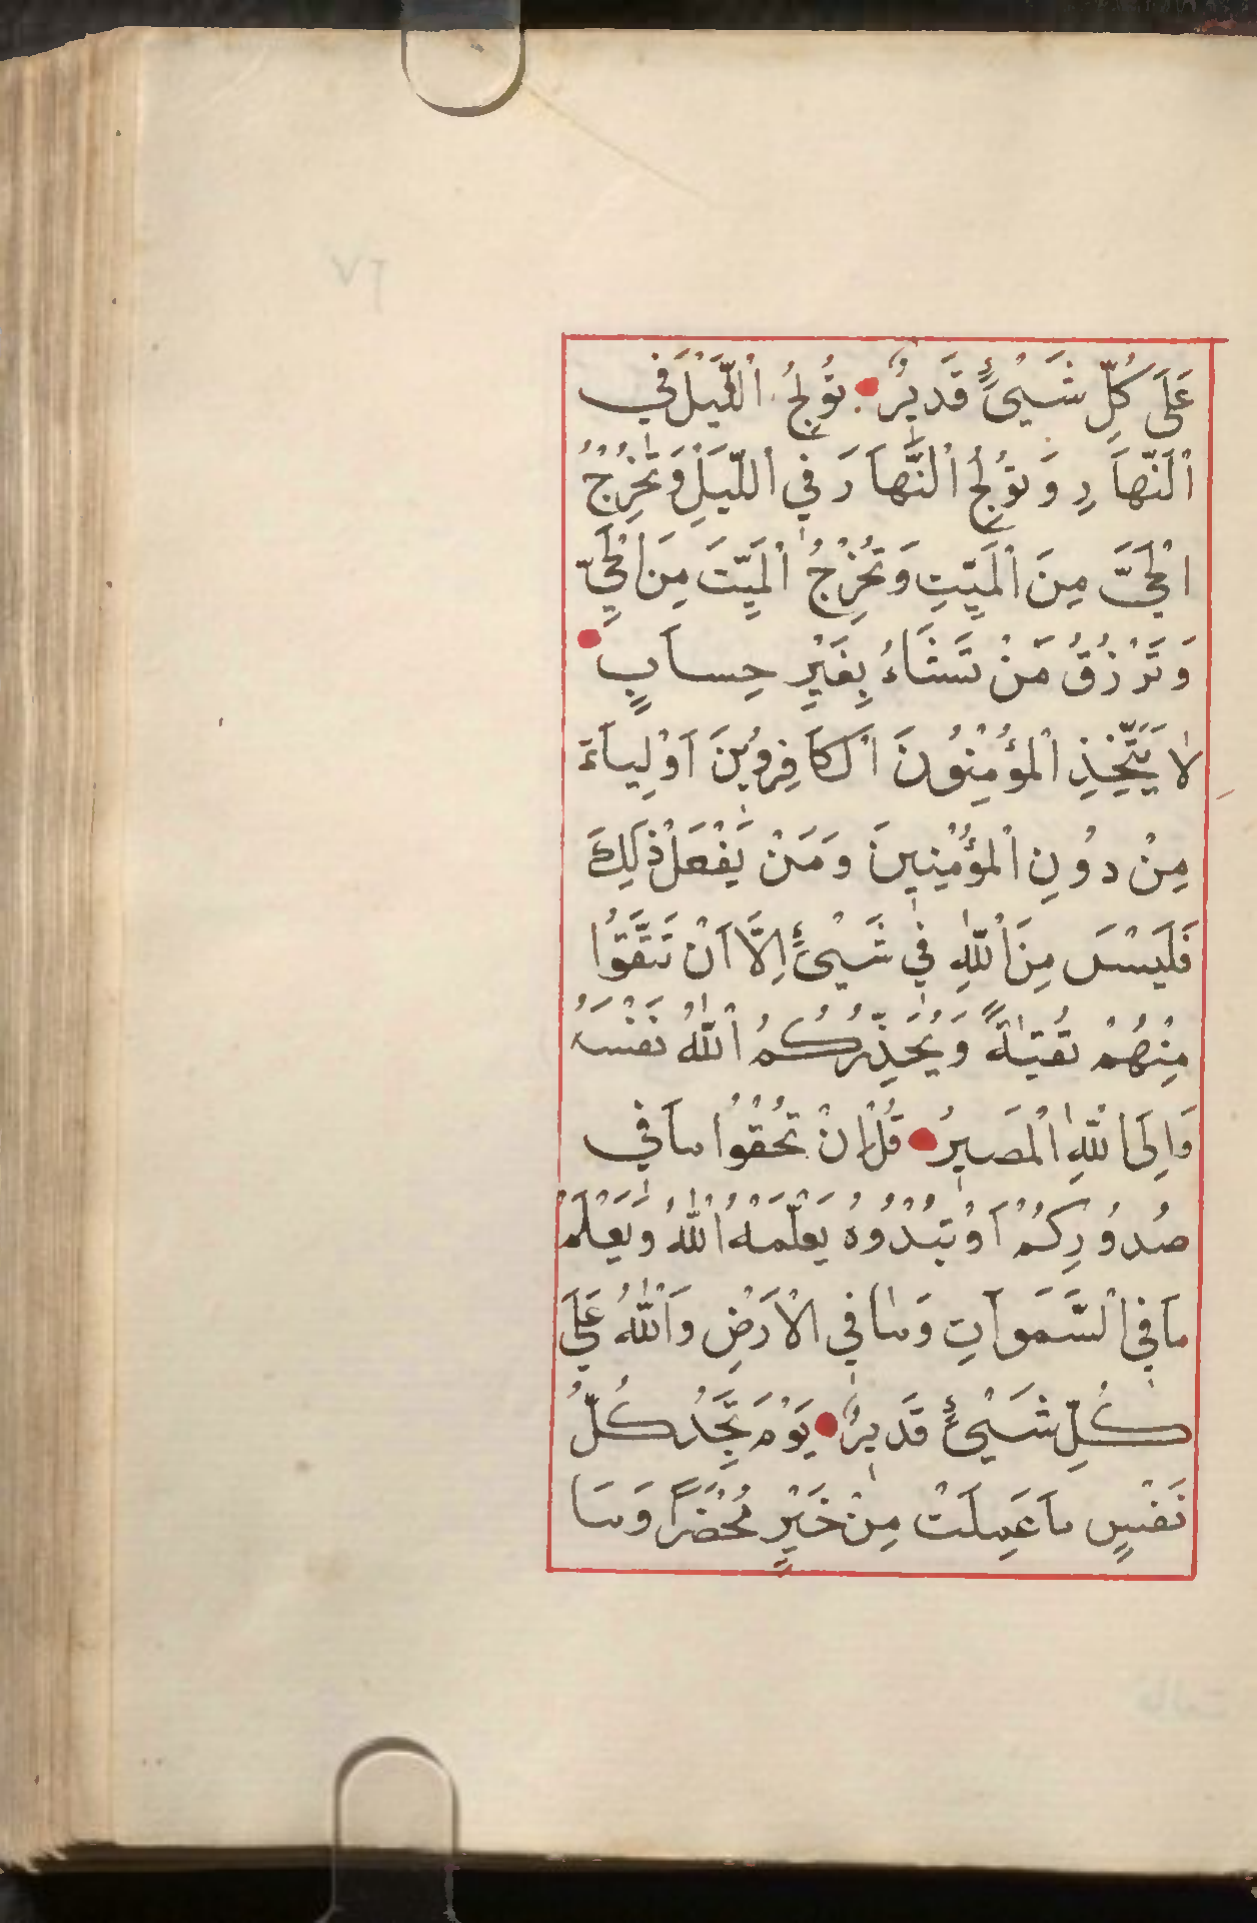 عَلَى كُلِّ شَيْئٍ قَدِيرٌ تُولِجُ اْللَّيْلَ فِي
اْلنَّهَارِ وَتُولِجُ اْلنَّهَارَ فِي اْللَّيْلِ وَتُخْرِجُ
اْلحَيَّ مِنَ اْلمَيِّتِ وَتُخْرِجُ اْلمَيِّتَ مِنَ اْلحَيِّ
وَتَرْزُقُ مَنْ تَشَاءُ بِغَيْرِ حِسَابٍ
لاَ يَتَّخِذِ اْلمُؤْمِنُونَ اْلكَافِرِينَ اَوْلِيَاءَ
مِنْ دُونِ اْلمُؤْمِنِينَ وَمَنْ يَفْعَلْ ذٰلِكَ
فَلَيْسَ مِنَ اْللّٰهِ فِي شَيْئٍ اِلَّا اَنْ تَتَّقُوا
مِنْهُمْ تُقٰيةً وَيُحَذِّرُكُمُ اْللّٰهُ نَفْسَهُ
وَاِلَى اْللّٰهِ اْلمَصِيرُ قُلْ اِنْ تُخْفُوا مَا فِي
صُدُورِكُمْ اَوْ تُبْدُوهُ يَعْلَمْهُ اْللّٰهُ وَيَعْلَمُ
مَا فِي اْلسَّمَوَاتِ وَمَا فِي اْلاَرْضِ وَاْللّٰهُ عَلَى
كُلِّ شَيْئٍ قَدِيرٌ يَوْمَ تَجِدُ كُلُّ
نَفْسٍ مَا عَمِلَتْ مِنْ خَيْرٍ مُحْضَرًا وَمَا